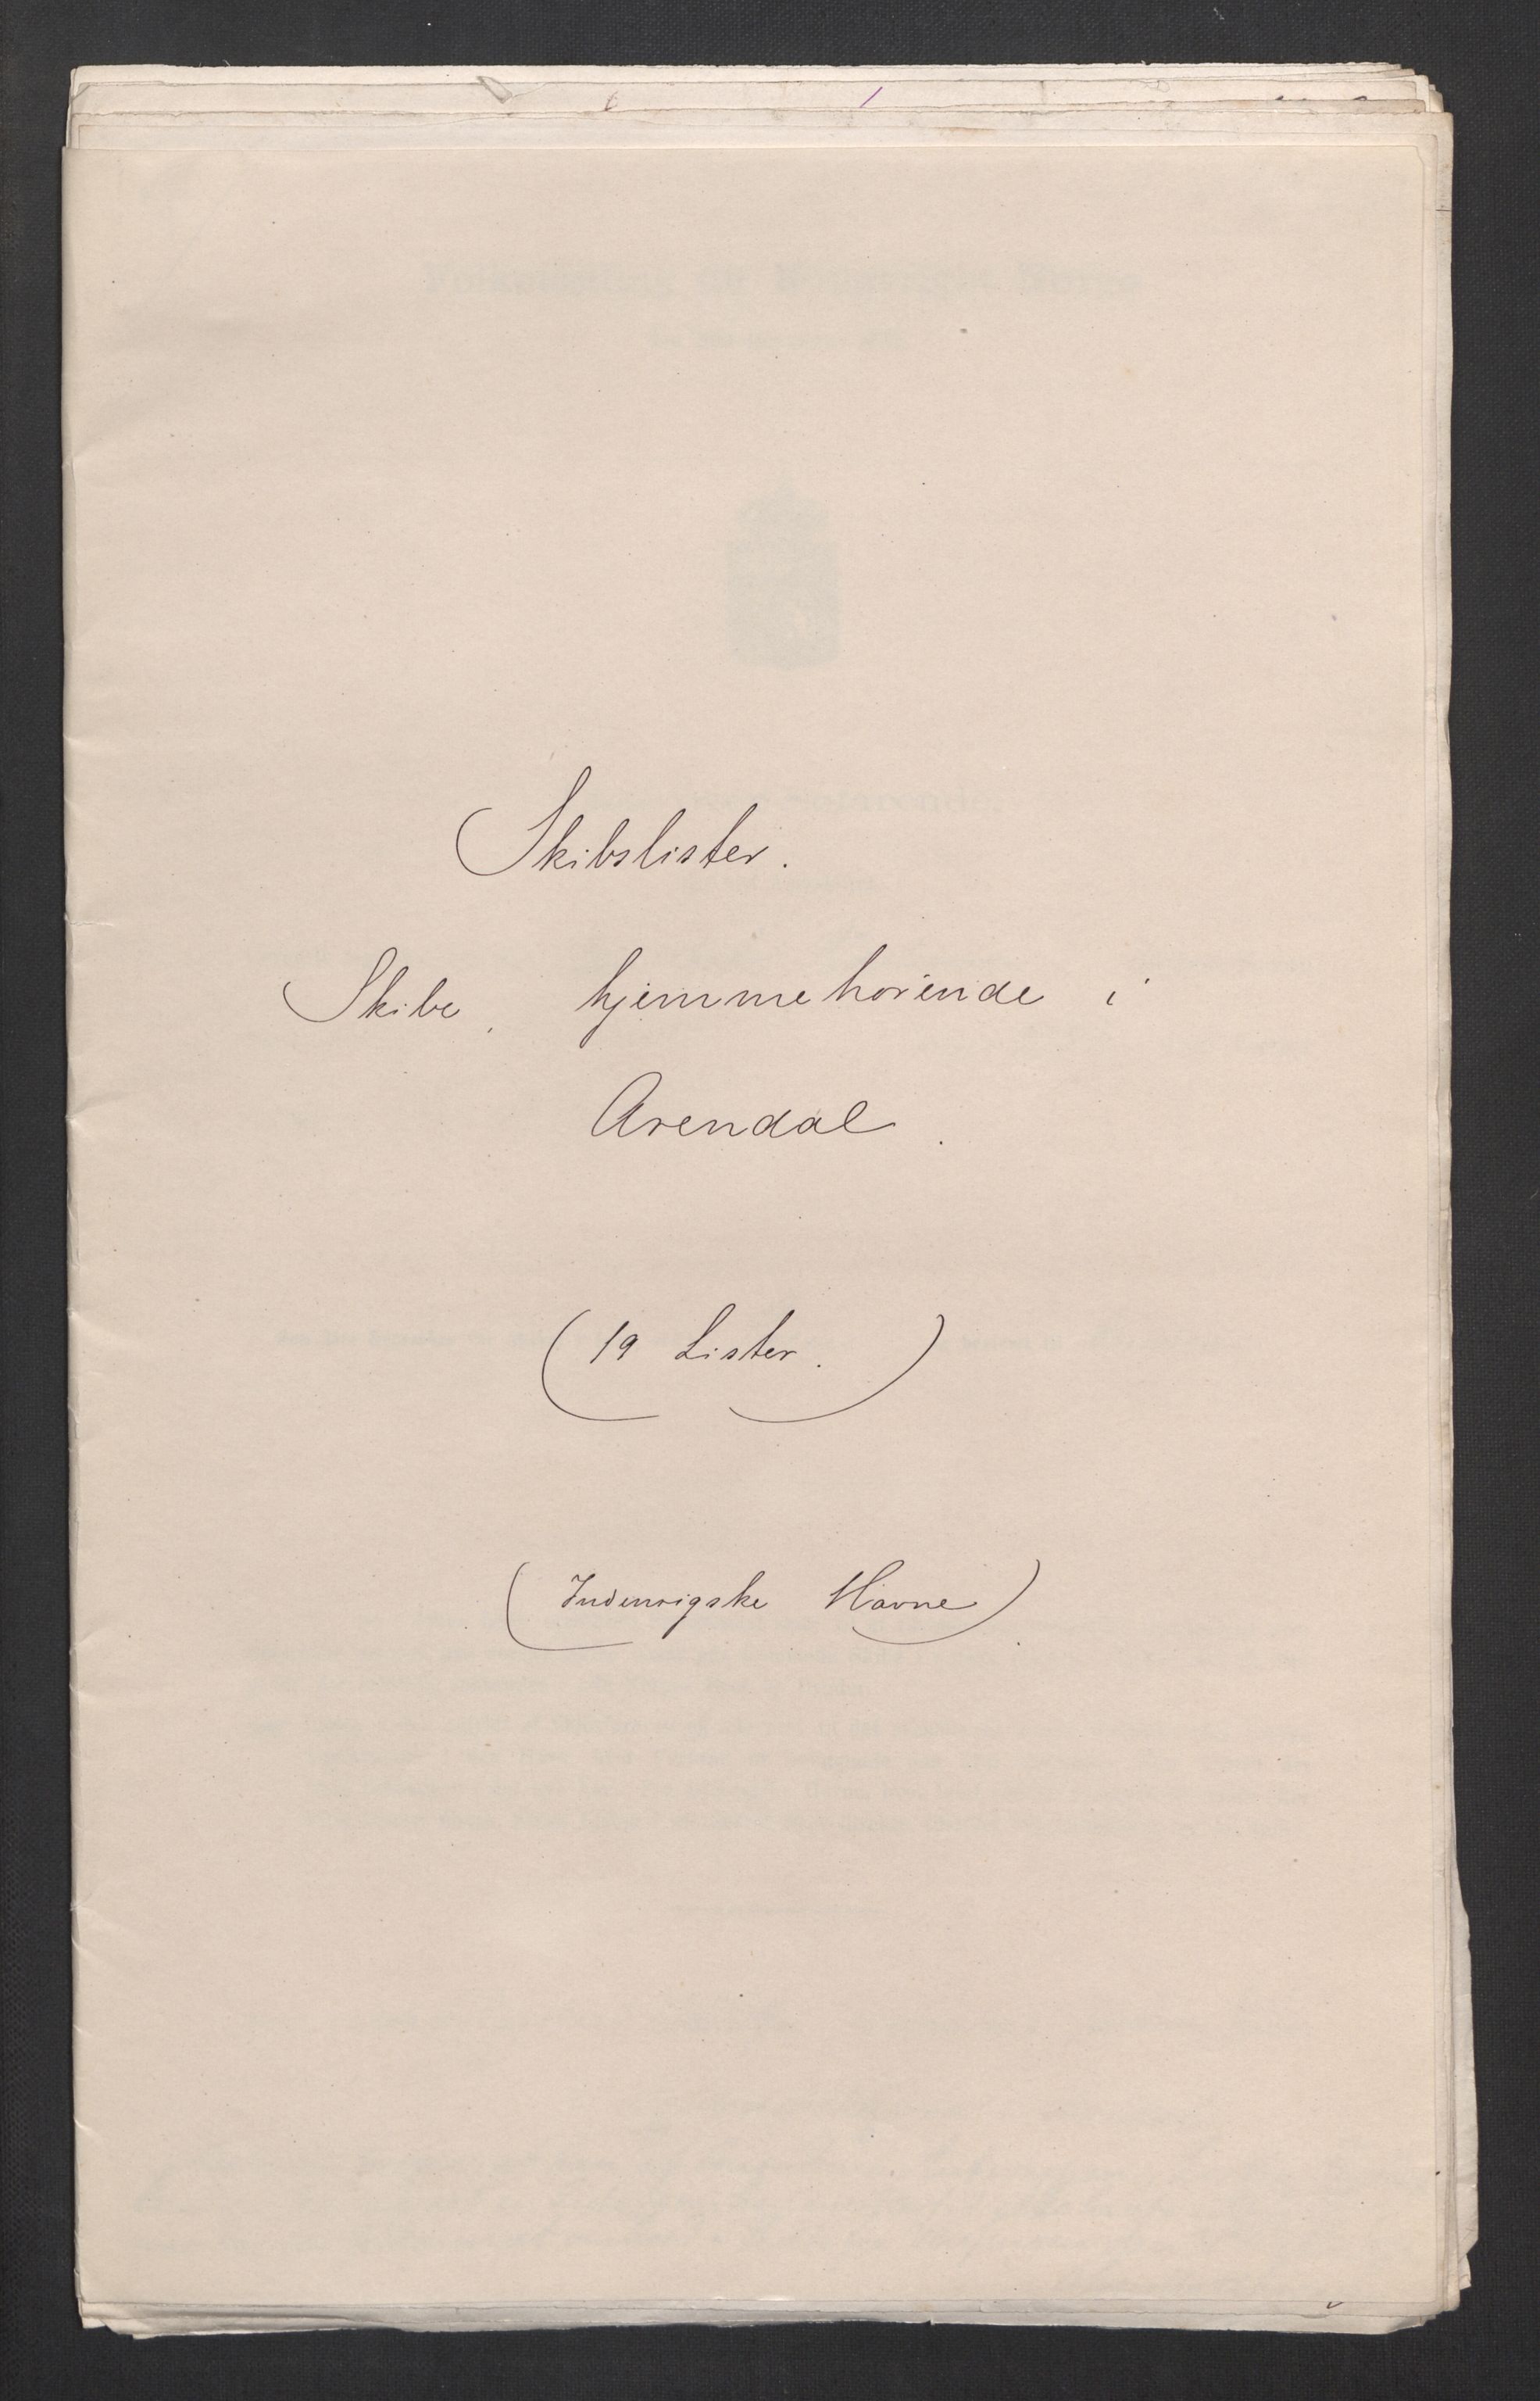 Skibslister.
Skibe, hjemmehørende i
Arendal.
(19 Lister.)
(Indenrigske Havne).